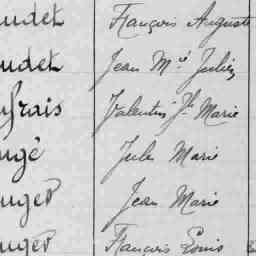 udet François Auguste
udet Jean Mié Julien
frais Valentin Jh Marie
ugé Jules Marie
uger Jean Marie
uger François Louis